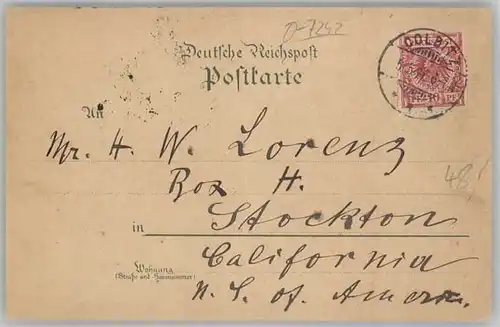 0-7242
Deutsche Reichspost
Postkarte
COLBITZ
An
Mr. H. W. Lorenz
Box H.
48
in Stockton
California
Wohnung
(Straße und Hausnummer)
N. S. of. Amerc.